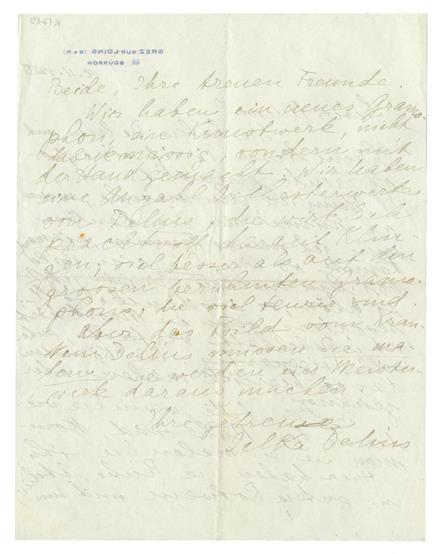 GREZ-SUR-LOING (S&M)
BOURRON
Beide, Ihre treuen Freunde.
Wir haben ein neues Gramo-
phon, ein Kunstwerk, nicht
fabrikmässig, sondern mit
der Hand gemacht. Wir haben
eine Anzahl Orchesterwerke
von Delius, die wirklich
prachtvoll darauf klin-
gen; viel besser als auf den
grossen berühmten gramo-
phons, die viel teurer sind.
Aber das Bild vom kran-
ken Delius müssen Sie ma-
len Sie werden ein Meister-
werk daraus machen
Ihre getreue
Jelka Delius